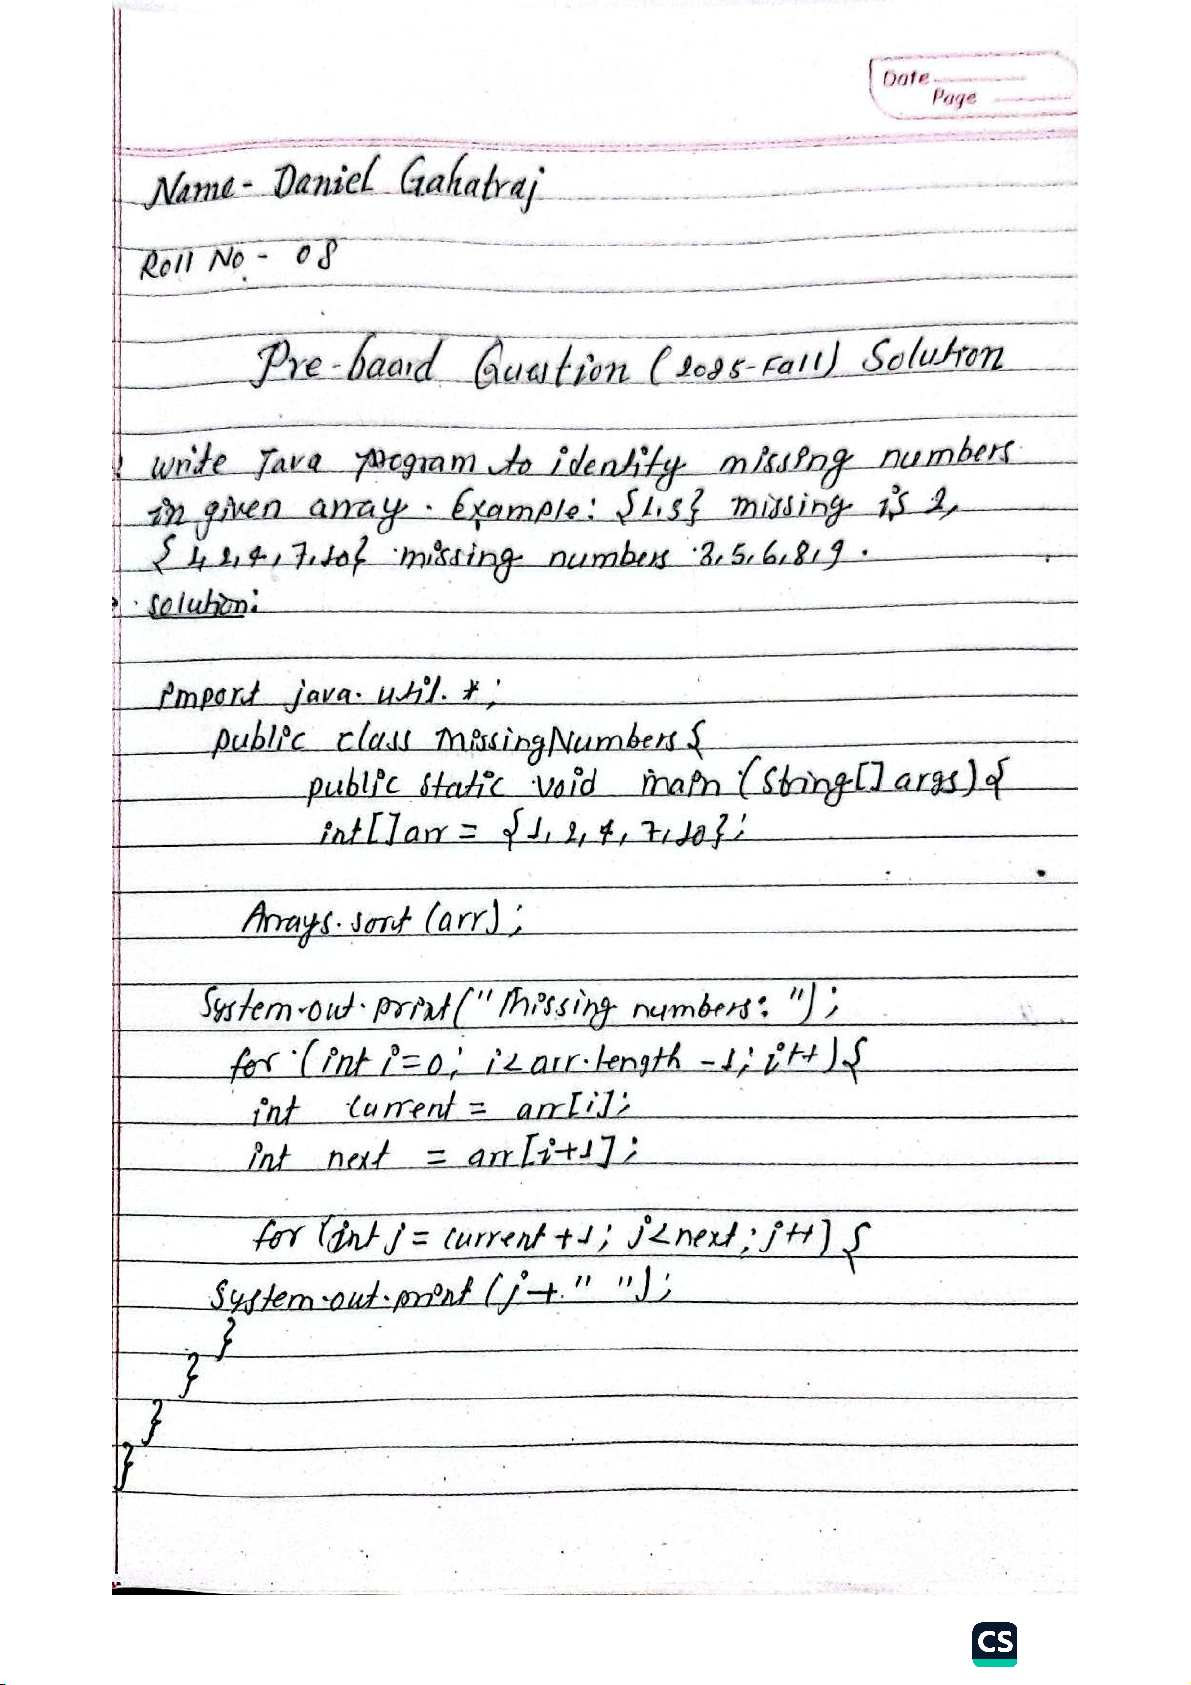 Date
Page
Name - Daniel Gahatraj
Roll No - 08
Pre-board Question (2025-Fall) Solution
write Java program to identify missing numbers
in given array. Example: {1,3} missing is 2,
{1,2,4,7,10} missing numbers 3,5,6,8,9.
solution:
import java.util.*;
public class MissingNumbers{
public static void main (String[] args){
int[] arr = {1,2,4,7,10};
Arrays.sort (arr);
System.out.print("Missing numbers: ");
for (int i=0; i<arr.length -1; i++){
int current = arr[i];
int next = arr[i+1];
for (int j = current +1; j<next; j++) {
System.out.print (j+" ");
}
}
}
}
CS